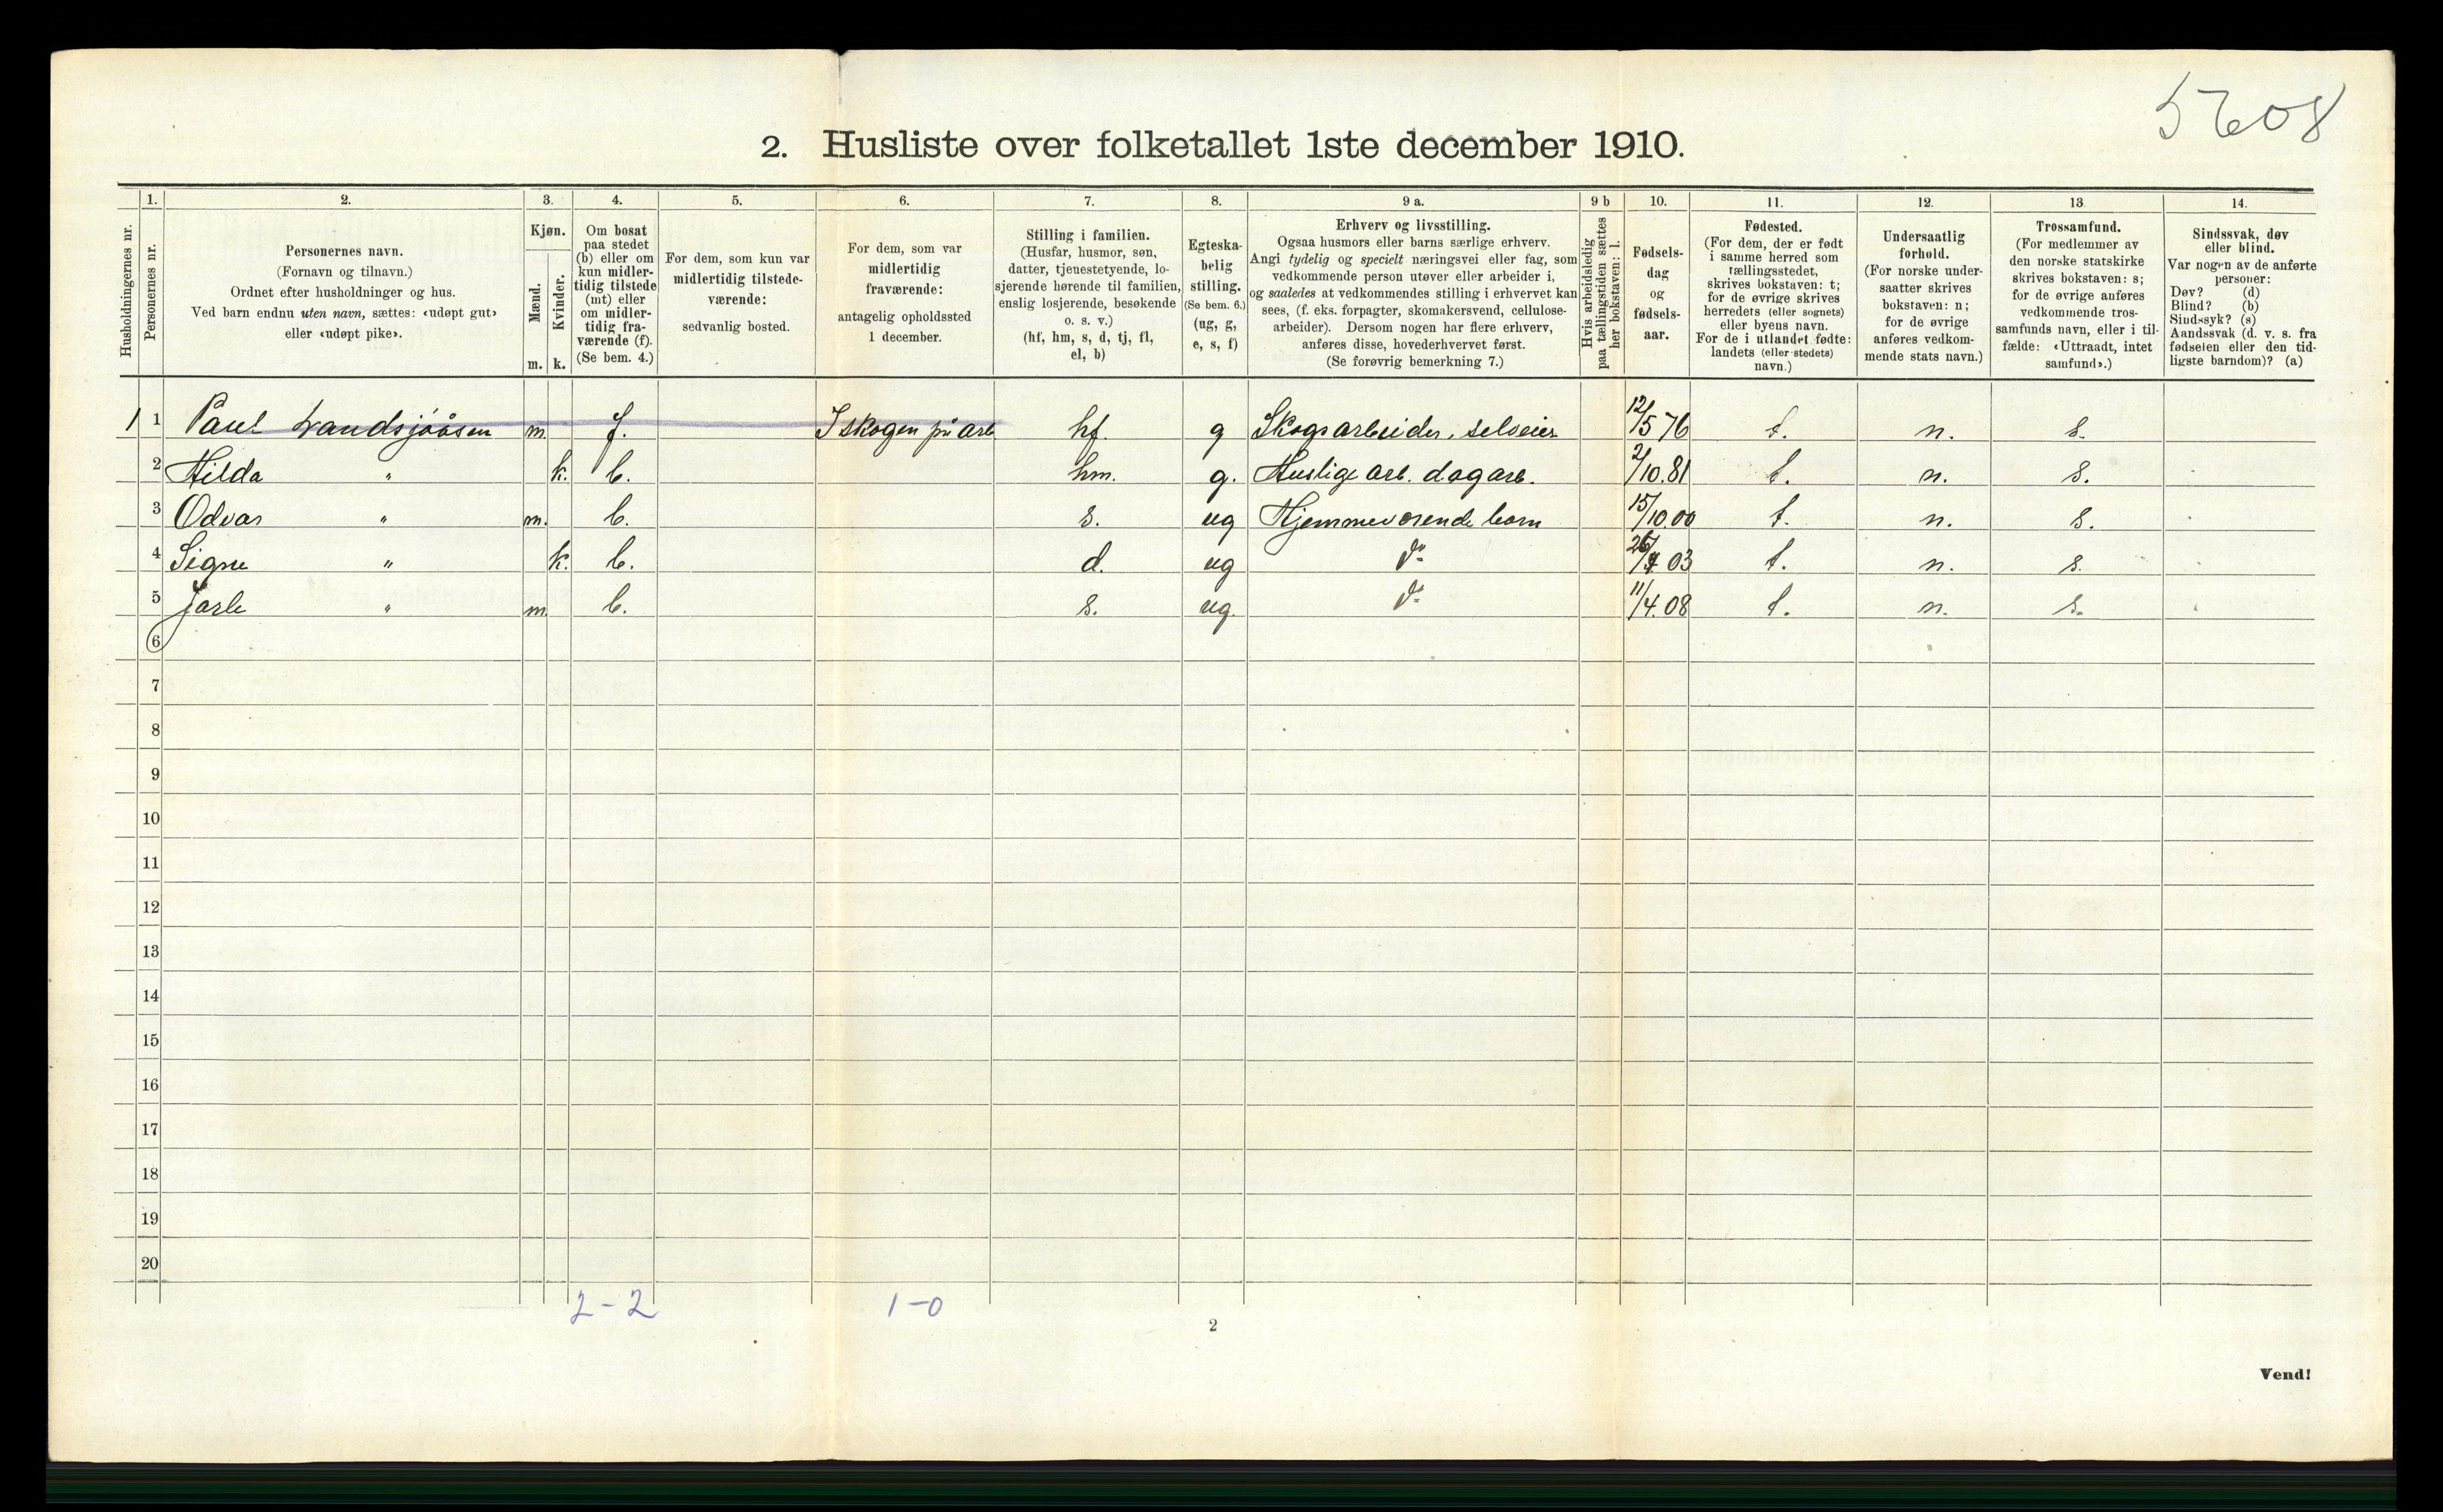 5608
2. Husliste over folketallet 1ste december 1910.
Husholdningernes nr.
1.
Personernes nr.
2.
Personernes navn.
(Fornavn og tilnavn.)
Ordnet efter husholdninger og hus.
Ved barn endnu uten navn, sættes: «udøpt gut»
eller «udøpt pike».
3.
Kjøn.
Mænd.
Kvinder.
m. k.
4.
Om bosat
paa stedet
(b) eller om
kun midler-
tidig tilstede
(mt) eller
om midler-
tidig fra-
værende (f).
(Se bem. 4.)
5.
For dem, som kun var
midlertidig tilstede-
værende:
sedvanlig bosted.
6.
For dem, som var
midlertidig
fraværende:
antagelig opholdssted
1 december.
7.
Stilling i familien.
(Husfar, husmor, søn,
datter, tjenestetyende, lo-
sjerende hørende til familien,
enslig losjerende, besøkende
o. s. v.)
(hf, hm, s, d, tj, fl,
el, b)
8.
Egteska-
belig
stilling.
(Se bem. 6.)
(ug, g,
e, s, f)
9 a.
Erhverv og livsstilling.
Ogsaa husmors eller barns særlige erhverv.
Angi tydelig og specielt næringsvei eller fag, som
vedkommende person utøver eller arbeider i,
og saaledes at vedkommendes stilling i erhvervet kan
sees, (f. eks. forpagter, skomakersvend, cellulose-
arbeider). Dersom nogen har flere erhverv,
anføres disse, hovederhvervet først.
(Se forøvrig bemerkning 7.)
9 b
Hvis arbeidsledig
paa tællingstiden sættes
her bokstaven: l.
10.
Fødsels-
dag
og
fødsels-
aar.
11.
Fødested.
(For dem, der er født
i samme herred som
tællingsstedet,
skrives bokstaven: t;
for de øvrige skrives
herredets (eller sognets)
eller byens navn.
For de i utlandet fødte:
landets (eller stedets)
navn.)
12.
Undersaatlig
forhold.
(For norske under-
saatter skrives
bokstaven: n;
for de øvrige
anføres vedkom-
mende stats navn.)
13.
Trossamfund.
(For medlemmer av
den norske statskirke
skrives bokstaven: s;
for de øvrige anføres
vedkommende tros-
samfunds navn, eller i til-
fælde: «Uttraadt, intet
samfund».)
14.
Sindssvak, døv
eller blind.
Var nogen av de anførte
personer:
Døv? (d)
Blind? (b)
Sindssyk? (s)
Aandssvak (d. v. s. fra
fødselen eller den tid-
ligste barndom)? (a)
1 1 Paul Landsjöåsen m. f. I skogen på arb hf. g Skogsarbeider, selveier 12/5 76 t. n. s.
2 Hilda " k. b. hm. g. Huslige arb. dagarb. 2/10.81 t. n. s.
3 Odvar " m. b. s. ug Hjemmeværende barn 15/10.00 t. n. s.
4 Signe " k. b. d. ug do 03 t. n. s.
5 Jarle " m b. s. ug. do 11/4.08 t. n. s.
6
7
8
9
10
11
12
13
14
15
16
17
18
19
20
2-2 1-0
2
Vend!